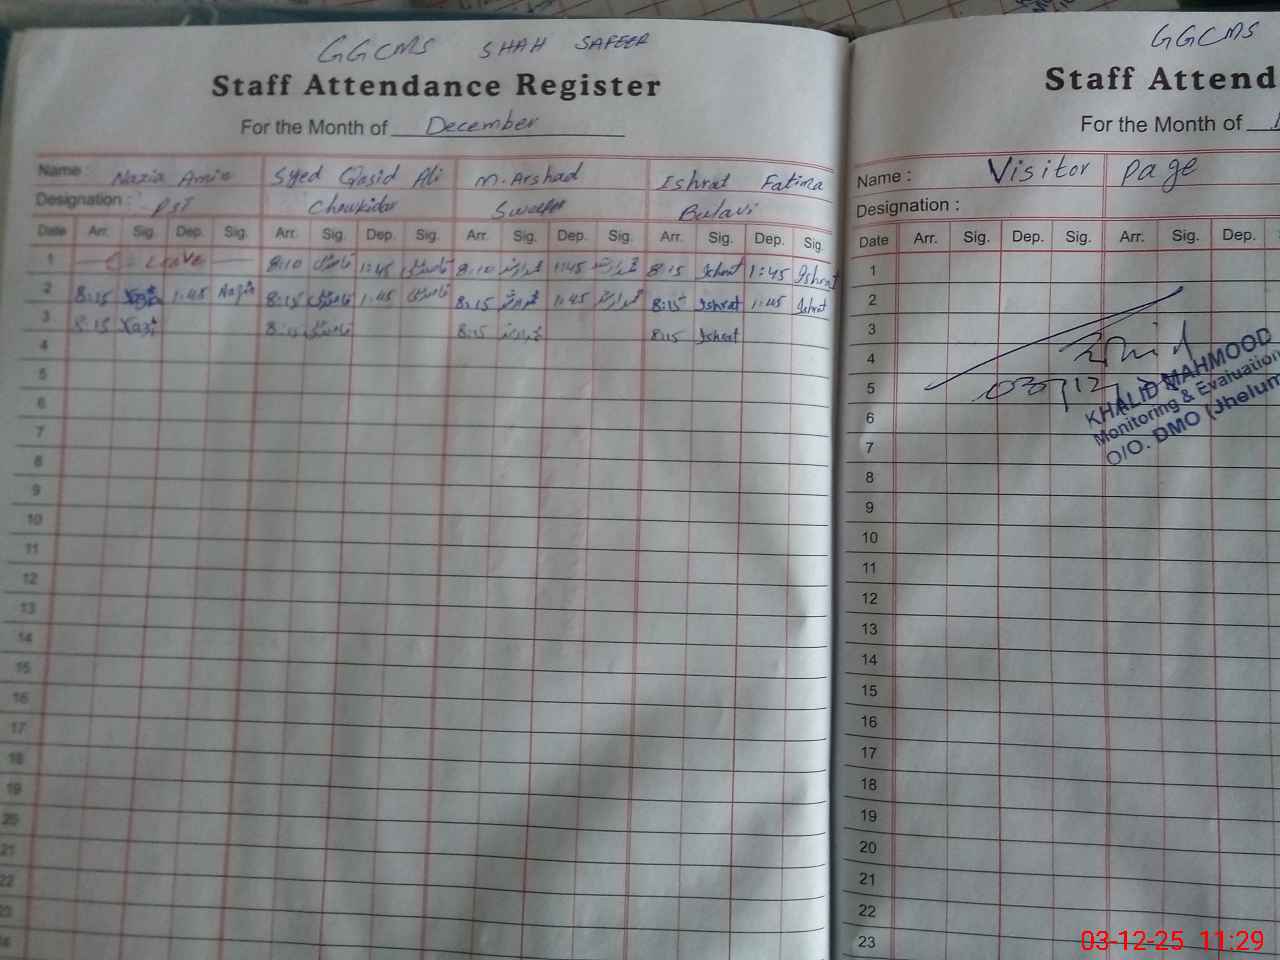 GGCMS SHAH SAFEER
Staff Attendance Register
For the Month of December
Name : Nazia Amin Syed Qasid Ali M. Arshad Ishrat Fatima
Designation : PST Chowkidar Sweeper Bulavi
Date Arr. Sig. Dep. Sig. Arr. Sig. Dep. Sig. Arr. Sig. Dep. Sig. Arr. Sig. Dep. Sig.
1 C - Leave 8:10 1:45 8:10 1:45 8:15 Ishrat 1:45 Ishrat
2 8:15 1:45 Nazia 8:15 1:45 8:15 1:45 8:15 Ishrat 1:45 Ishrat
3 8:15 8:15 8:15 Ishrat
4
5
6
7
8
9
10
11
12
13
14
15
16
17
18
19
20
21
22
23
GGCMS
Staff Attend
For the Month of
Name : Visitor Page
Designation :
Date Arr. Sig. Dep. Sig. Arr. Sig. Dep.
1
2
3
4
5 03/12/
KHALID MAHMOOD
Monitoring & Evaluation
O/O. DMO (Jhelum
6
7
8
9
10
11
12
13
14
15
16
17
18
19
20
21
22
23
03-12-25 11:29